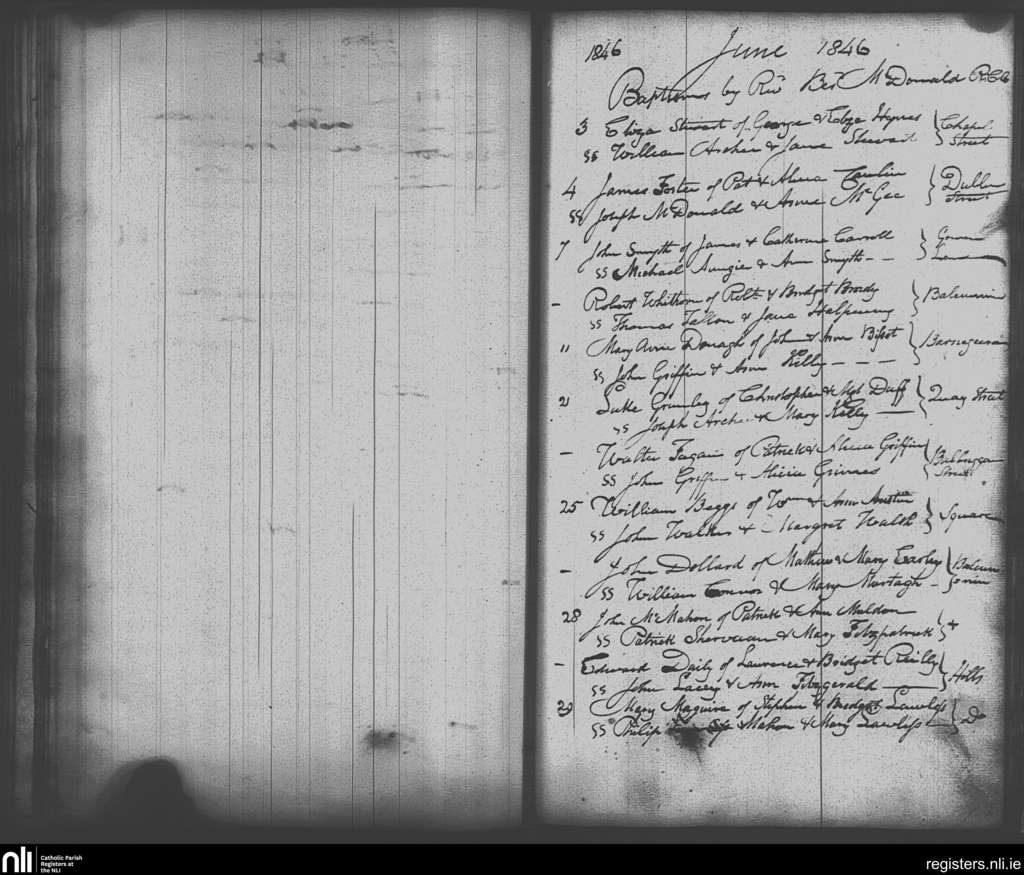 1846 June 1846
Baptisms by Revd Bed McDonald
3 Eliza Stewart of George & Eliza Hynes } Chapel
SS William Archer & Jane Stewart Street
4 James Foster of Pat & Alicia } Dublin
SS Joseph McDonald & Anne McGee Street
7 John Smyth of James & Catherine Carroll }
SS Michael & Ann Smyth - -
- Robert of Robt & Bridget Brody }
SS Thomas Fallon & Jane Halpenny
11 Mary Anne Donagh of John & Ann }
SS John Griffin & Ann Kelly - - -
21 Luke Grimley of Christopher & Mgt Duff } Quay Street
SS Joseph & Mary Kelly —
- Walter Fagan of Patrick & Alicia Griffin } Balbriggan
SS John Griffin & Alicia Grimes Street
25 William Beggs of Wm & Ann Austin } Square
SS John Walker & Margret Walsh
- John Dollard of Mathew & Mary Earley }
SS William Connor & Mary Murtagh -
28 John McMahon of Patrick & Ann Muldon }
SS Patrick & Mary Fitzpatrick
- Edward Daily of Lawrence & Bridget Reilly } Hills
SS John Lacey & Ann Fitzgerald —
29 Mary Maguire of Stephen & Bridget Lawless } Do
SS Philip Mahon & Mary Lawless
nli Catholic Parish
Registers at
the NLI
registers.nli.ie